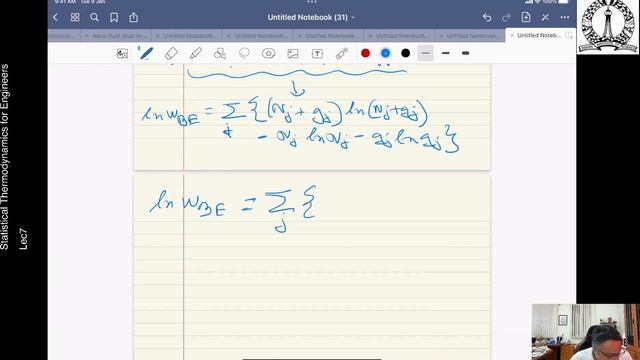 9:41 AM Tue 9 Jan
Untitled Notebook (31)
Notebook...
Nano fluid drop im...
Untitled Notebook...
Untitled Notebook...
Untitled Notebook...
Untitled Notebook...
Untitled Notebook...
Untitled Noteb...
ln W_BE = Σ_j {(N_j + g_j) ln (N_j + g_j)
- N_j ln N_j - g_j ln g_j}
ln W_BE = Σ_j {
Statistical Thermodynamics for Engineers
Lec7